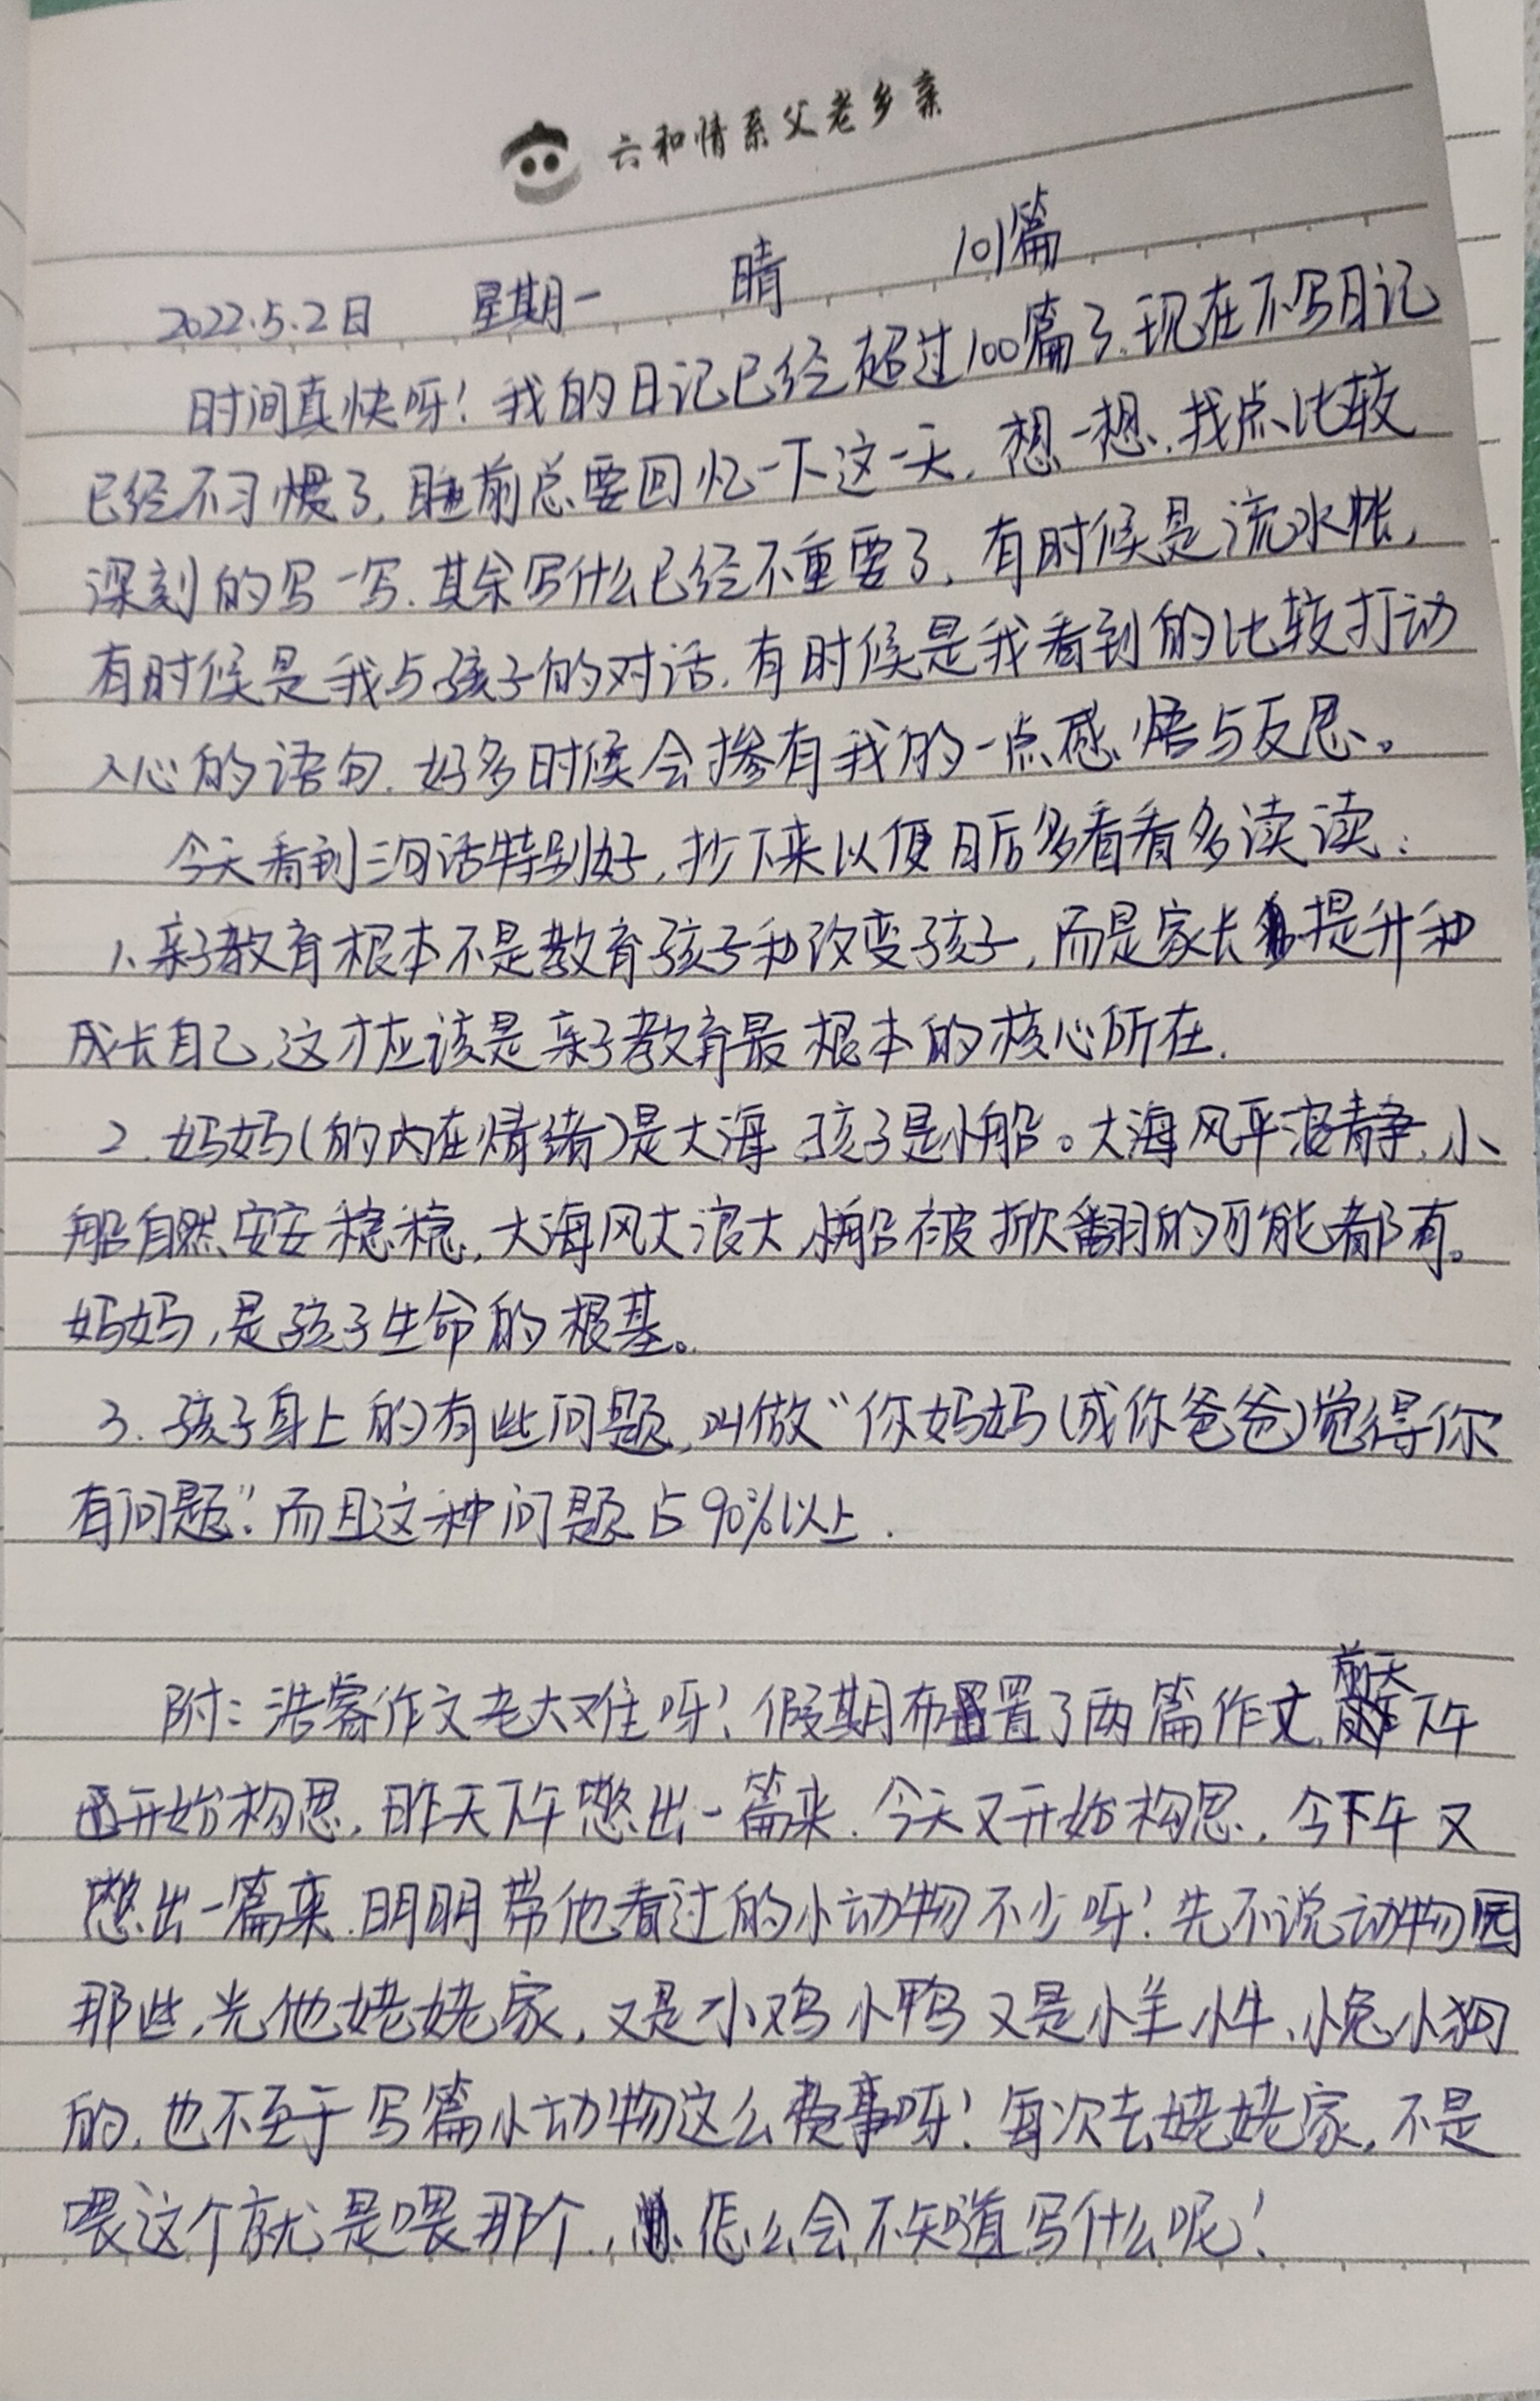 六和情系父老乡亲
2022.5.2日 星期一 晴 101篇
时间真快呀！我的日记已经超过100篇了.现在不写日记
已经不习惯了,睡前总要回忆一下这一天,想一想,找点比较
深刻的写一写.其余写什么已经不重要了,有时候是流水帐,
有时候是我与孩子的对话,有时候是我看到的比较打动
人心的语句.好多时候会掺有我的一点感悟与反思。
今天看到三句话特别好,抄下来以便日后多看看多读读:
1、亲子教育根本不是教育孩子和改变孩子,而是家长提升和
成长自己,这才应该是亲子教育最根本的核心所在.
2.妈妈(的内在情绪)是大海 孩子是小船。大海风平浪静,小
船自然安安稳稳,大海风大浪大,小船被掀翻的可能都有。
妈妈,是孩子生命的根基。
3.孩子身上的有些问题,叫做“你妈妈(或你爸爸)觉得你
有问题”.而且这种问题占90%以上.
附:浩客作文老大难呀!假期布置了两篇作文,前天下午
开始构思,昨天下午憋出一篇来.今天又开始构思,今下午又
憋出一篇来.明明带他看过的小动物不少呀!先不说动物园
那些,光他姥姥家,又是小鸡小鸭又是小羊小牛、小兔小狗
的,也不至于写篇小动物这么费事呀!每次去姥姥家,不是
喂这个就是喂那个,怎么会不知道写什么呢!